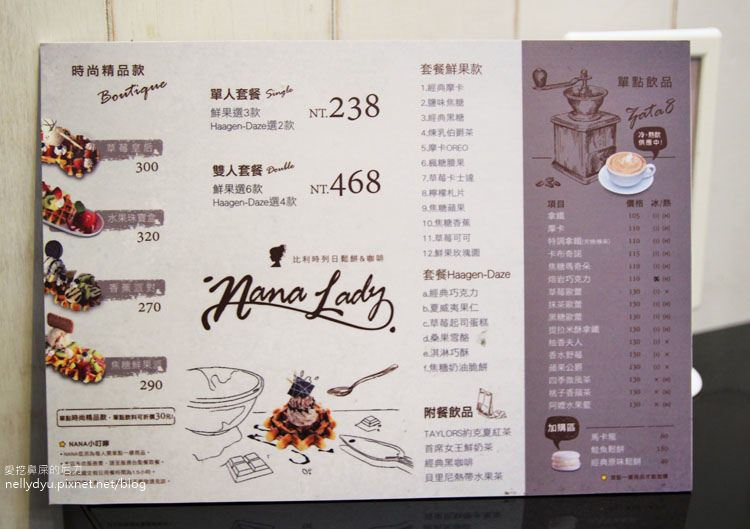 時尚精品款
Boutique
草莓皇后
300
水果珠寶盒
320
香蕉派對
270
焦糖鮮果
290
單點時尚精品款，單點飲料可折價30元!
NANA小叮嚀
單人套餐 Single
鮮果選3款
Haagen-Daze選2款
NT.238
雙人套餐 Double
鮮果選6款
Haagen-Daze選4款
NT.468
比利時列日鬆餅&咖啡
Nana Lady
套餐鮮果款
1.經典摩卡
2.鹽味焦糖
3.經典黑糖
4.煉乳伯爵茶
5.摩卡OREO
6.楓糖腰果
7.草莓卡士達
8.檸檬札片
9.焦糖蘋果
10.焦糖香蕉
11.草莓可可
12.鮮果玫瑰園
套餐Haagen-Daze
a.經典巧克力
b.夏威夷果仁
c.草莓起司蛋糕
d.桑果雪酪
e.淇淋巧酥
f.焦糖奶油脆餅
附餐飲品
TAYLORS約克夏紅茶
首席女王鮮奶茶
經典黑咖啡
貝里尼熱帶水果茶
單點飲品
冷．熱飲
供應中!
項目 價格 冰/熱
拿鐵 105
摩卡 110
特調拿鐵 110
卡布奇諾 115
焦糖瑪奇朵 110
熔岩巧克力 110
草莓歐蕾 130
抹茶歐蕾 130
黑糖歐蕾 130
提拉米酥拿鐵 130
柚香夫人 130
香水野莓 130
蘋果公爵 130
四季微風茶 130
桃子香頌茶 130
阿嬤水果籃 130
加購區
馬卡龍 60
鮭魚鬆餅 150
經典原味鬆餅 90
愛挖鼻屎的七力
nellydyu.pixnet.net/blog